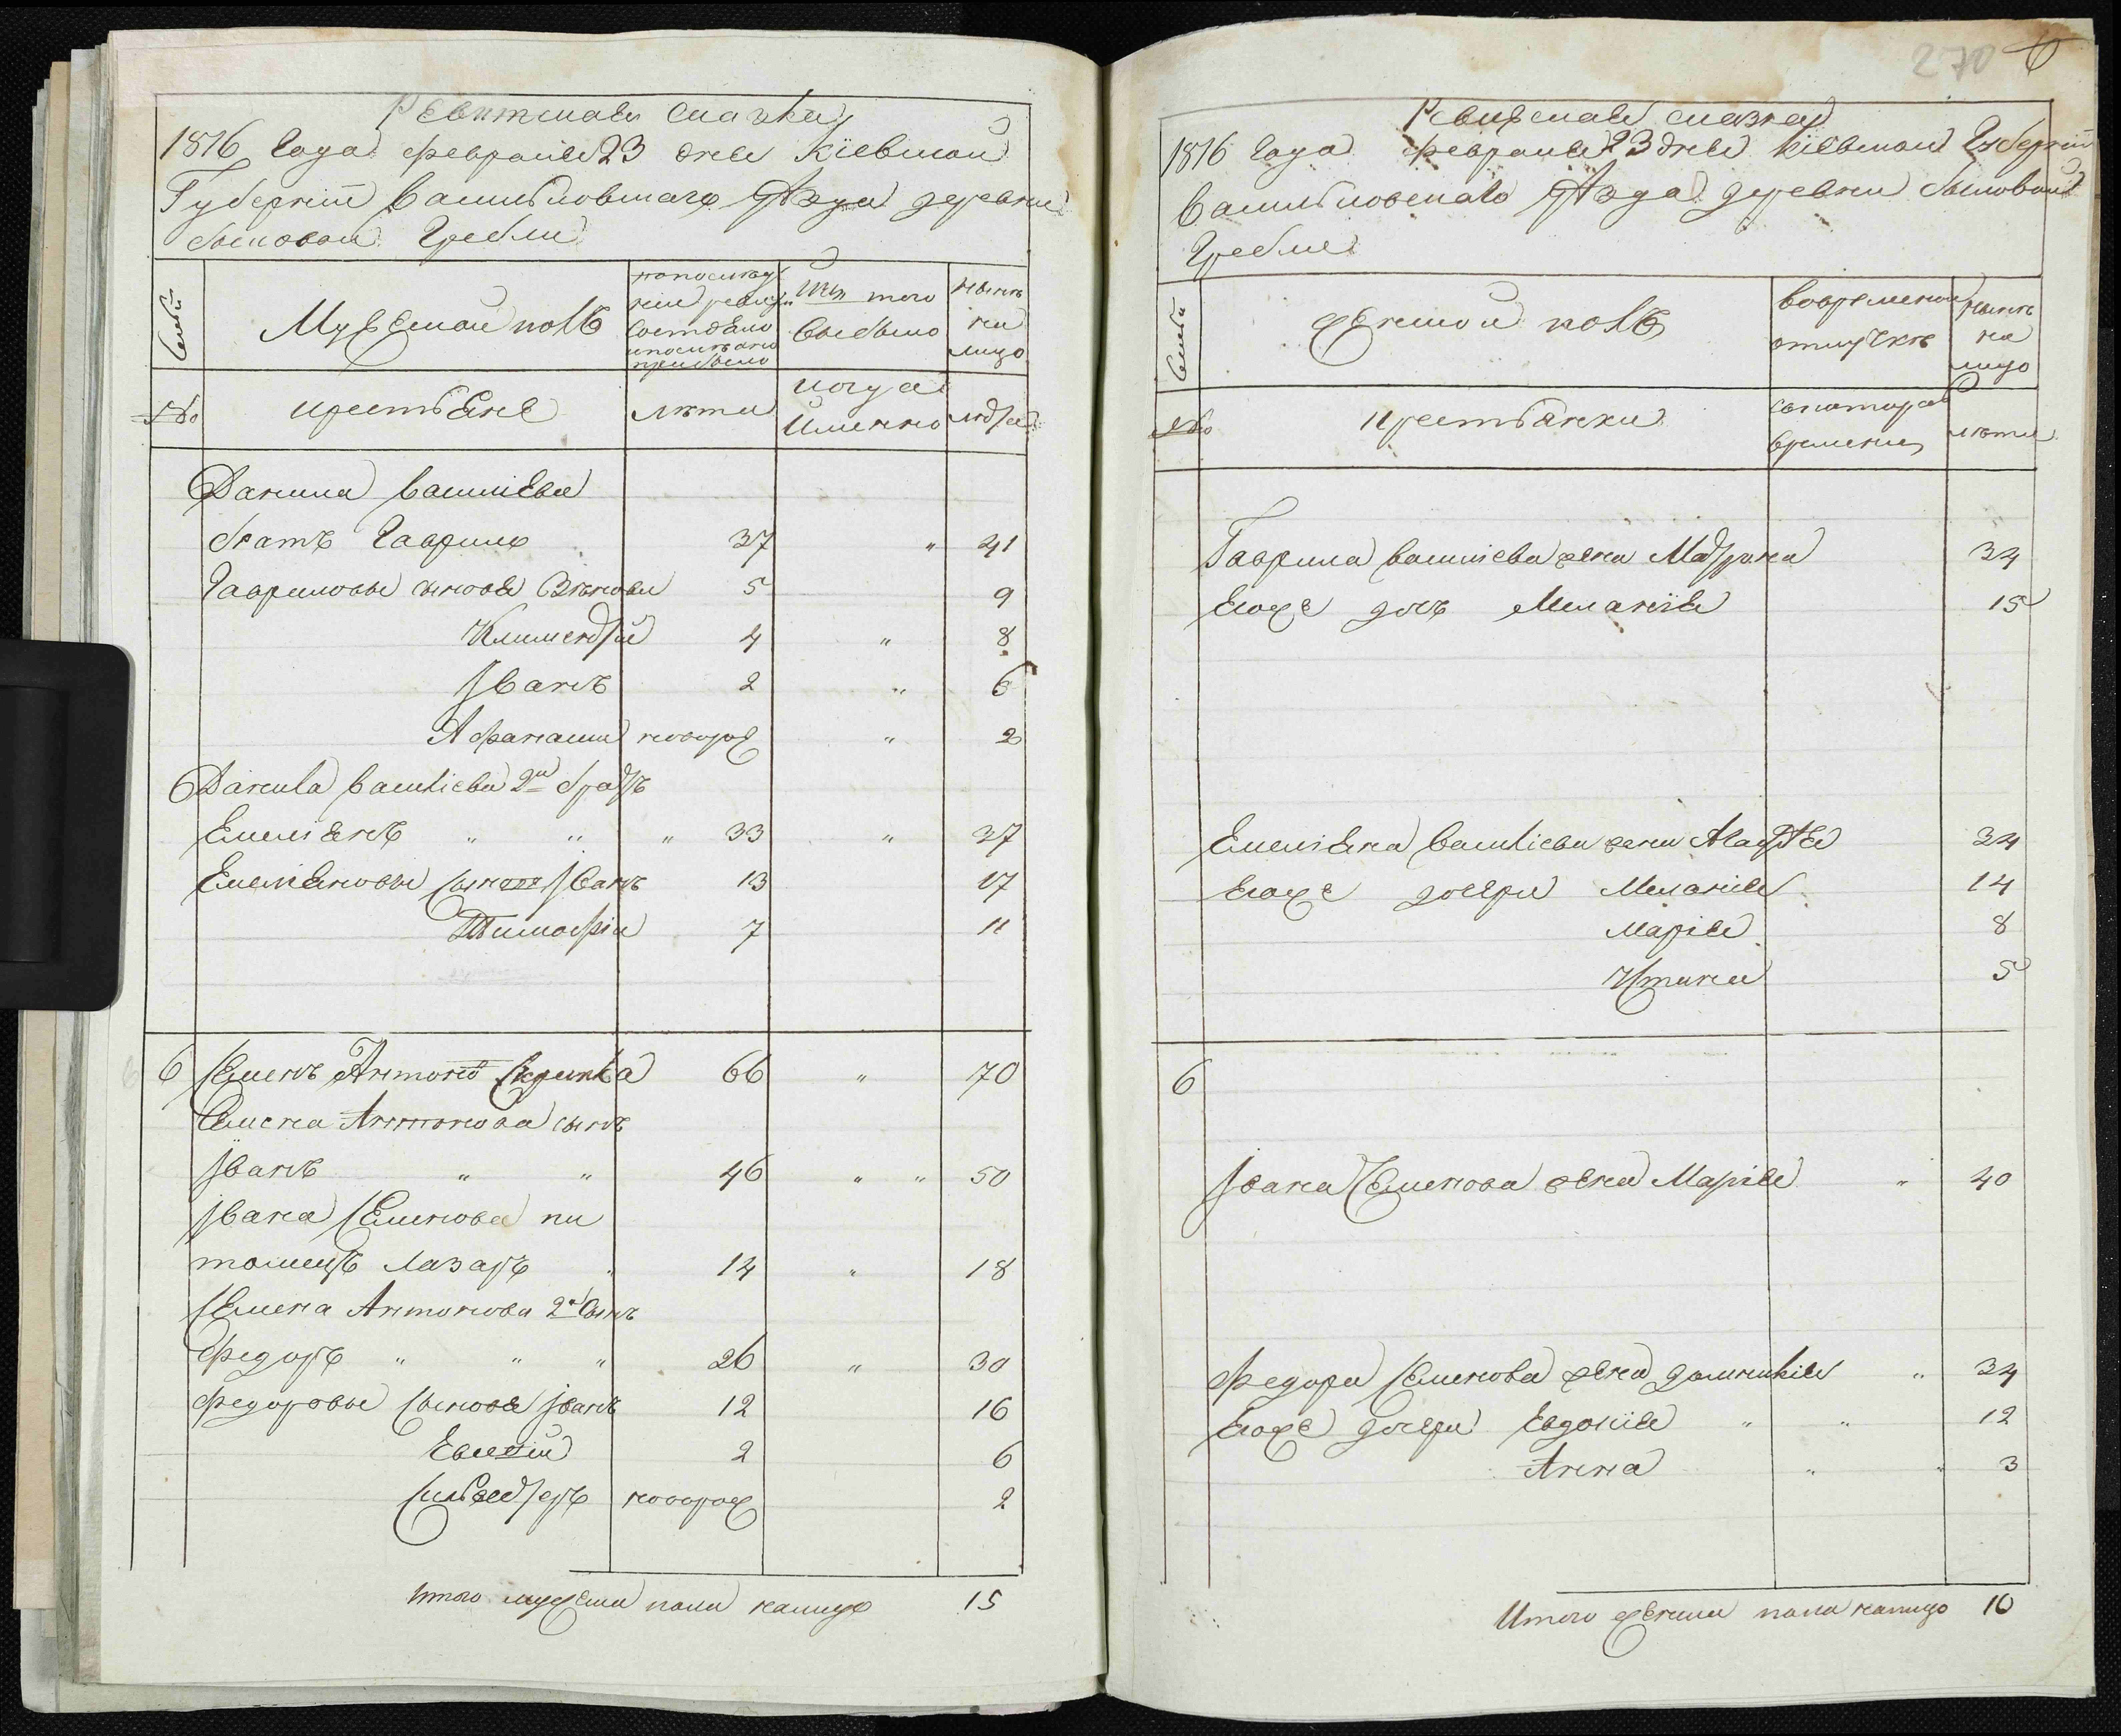 Ревизская сказка
1816 года февраля 23 дня Кіевской
Губерніи Васильковскаго уѣзда деревни
Быковой Гребли
Семьи
Мужеской полъ
по послѣдней ревизіи состояло и послѣ оной прибыло
Изъ того выбыло
нынѣ на лицо
№
крестьяне
лѣта
когда именно
лѣта
Данила Василіева
братъ Гаврило 37 „ 41
Гавриловы сыновя Зѣновы 5 9
Климентій 4 „ 8
Іванъ 2 „ 6
Афанаси новорож 2
Данила Василіева 2й братъ
Емеліянъ „ „ „ 33 „ 37
Емеліяновы сыновя Іванъ 13 17
Тимофіи 7 11
6 Семенъ Антоновъ 66 „ 70
Семена Антонова сынъ
Іванъ „ „ 46 „ „ 50
Івана Семенова пи
томецъ Лазаръ 14 „ 18
Семена Антонова 2й сынъ
Федоръ „ „ „ 26 „ 30
Федоровы сыновя Іванъ 12 16
Евсевій 2 6
Силвестръ новорож 2
Итого мужеска пола налицо 15
270
6
Ревизская сказка
1816 года февраля 23 дня Кіевской Губерніи
Васильковскаго уѣзда деревни Быковой
Гребли
Семьи
Женской полъ
во временной отлучкѣ
нынѣ на лицо
№
крестьянки
съ котораго времени
лѣта
Гаврила Василіева жена Мотрона 34
Егоже дочъ Меланія 15
Емеліяна Василіева жена Агафія 34
Егоже дочери Меланія 14
Марія 8
Устина 5
6
Івана Семенова жена Марія „ 40
Федора Семенова жена Домникія „ 34
Егоже дочери Евдокія „ „ 12
Анна „ „ 3
Итого женска пола налицо 10